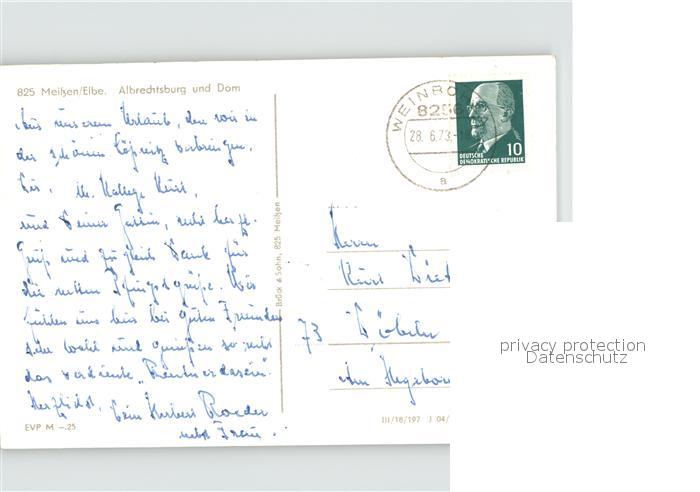 825 Meißen/Elbe. Albrechtsburg und Dom
Aus unserem Urlaub, den wir in
der schönen Lößnitz verbringen,
Dir, lb. Kollege Kurt,
und Deiner Gattin, recht herzl.
Grüße und zugleich Dank für
die netten Pfingstgrüße. Wir
fühlen uns hier bei guten Freunden
sehr wohl und genießen so recht
das verdiente „Rentnerdasein".
Herzlichst, Dein Herbert Roeder
nebst Frau.
EVP M –.25
Brück & Sohn, 825 Meißen
WEINBÖ
8256
28. 6. 73.-
a
10
DEUTSCHE
DEMOKRATISCHE REPUBLIK
Herrn
Kurt
73 Döbeln
Am
III/18/197 J 04/
privacy protection
Datenschutz